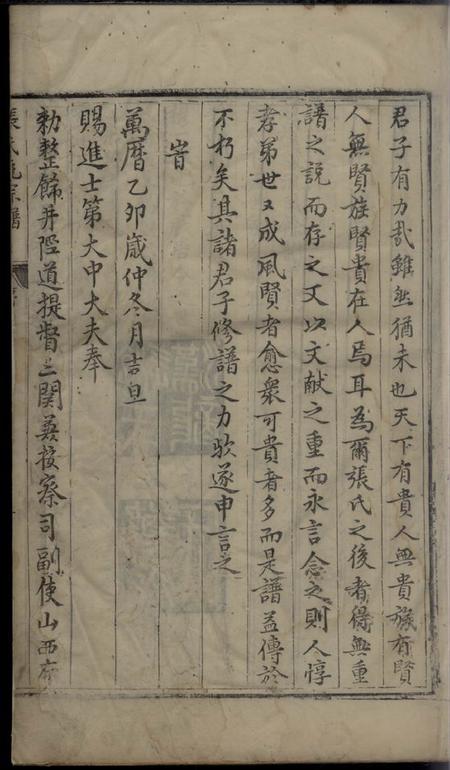 君子有力哉雖然猶未也天下有貴人無貴族有賢
人無賢族賢貴在人焉耳為爾張氏之後者得無重
譜之説而存之又以文献之重而永言念之則人惇
孝弟世又成風賢者愈衆可貴者多而是譜益傳於
不朽矣其諸君子修譜之力歟遂申言之
旹
萬曆乙卯歲仲冬月吉旦
賜進士第大中大夫奉
勅整飾井陘道提督三関兼按察司副使山西府
張氏宗譜